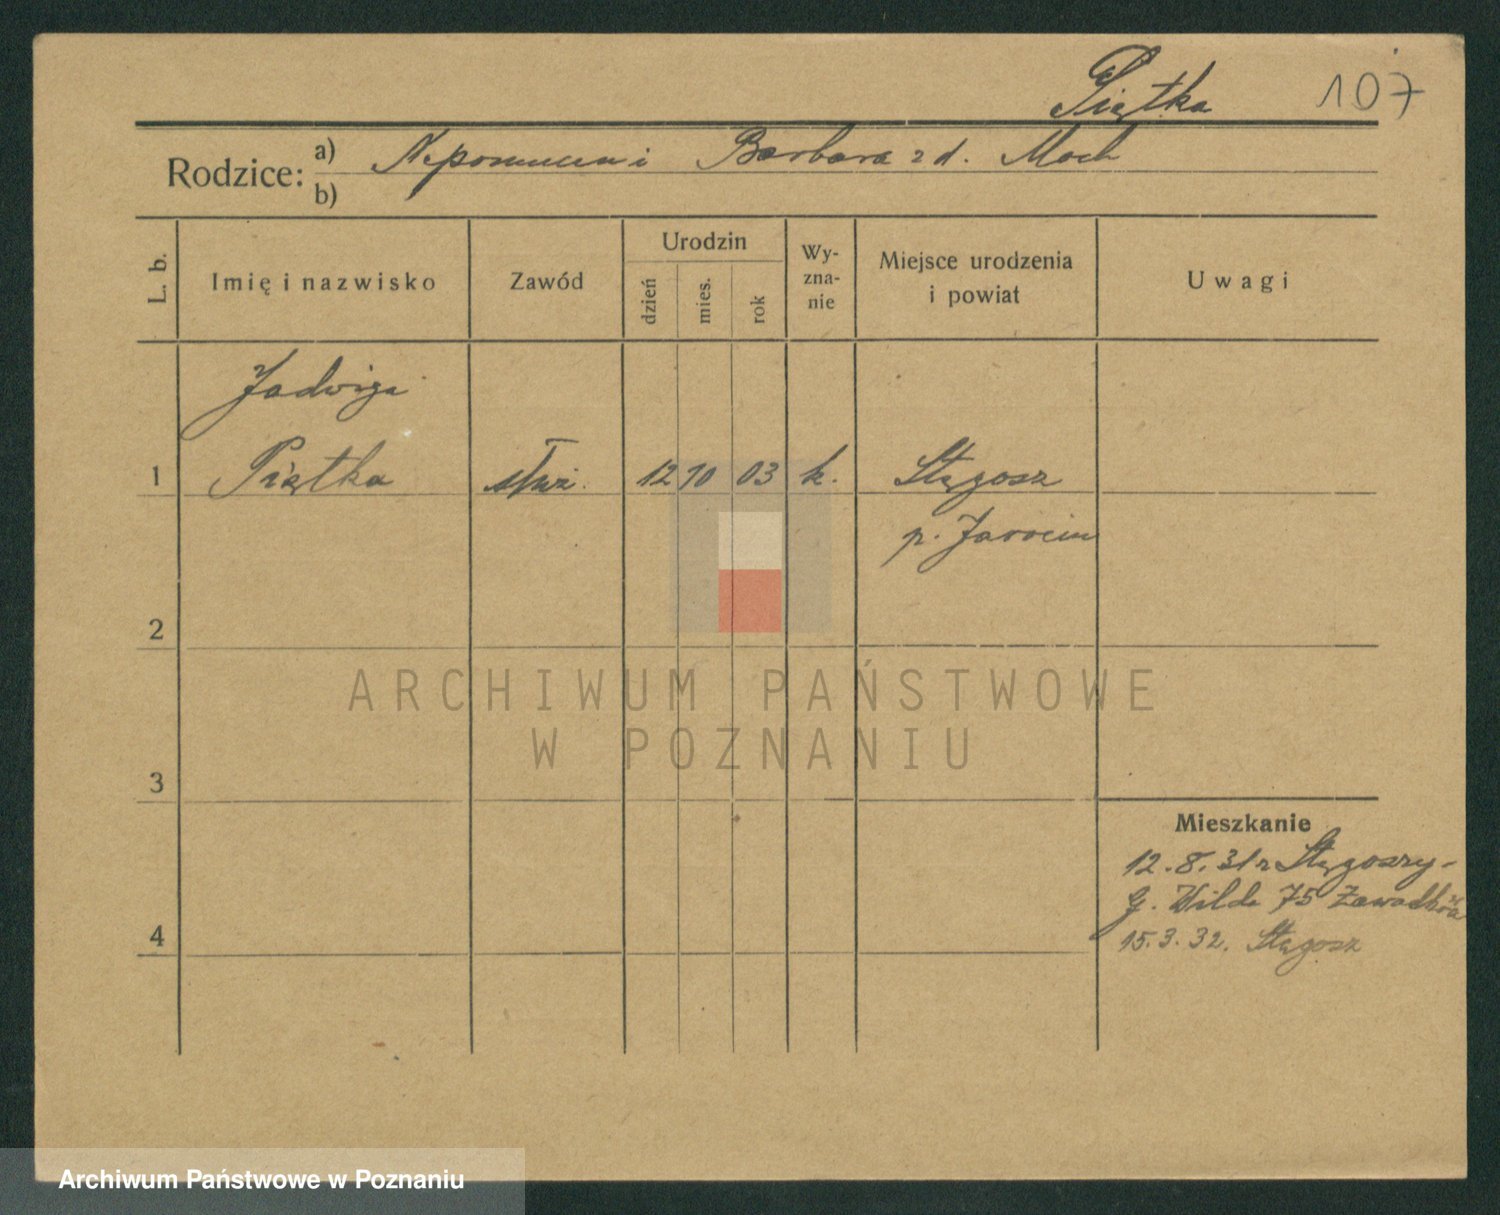 Piątka 107
Rodzice: a) Nepomucen i Barbara z d. Moch
b)
L. b. Imię i nazwisko Zawód Urodzin dzień mies. rok Wy-zna-nie Miejsce urodzenia i powiat Uwagi
Jadwiga
1 Piątka służ. 12 10 03 k. Stęgosz
p. Jarocin
2
ARCHIWUM PAŃSTWOWE
W POZNANIU
3
Mieszkanie
12.8.31 z Stęgoszy-
G. Wilda 75
4
15.3.32. Stęgosz
Archiwum Państwowe w Poznaniu